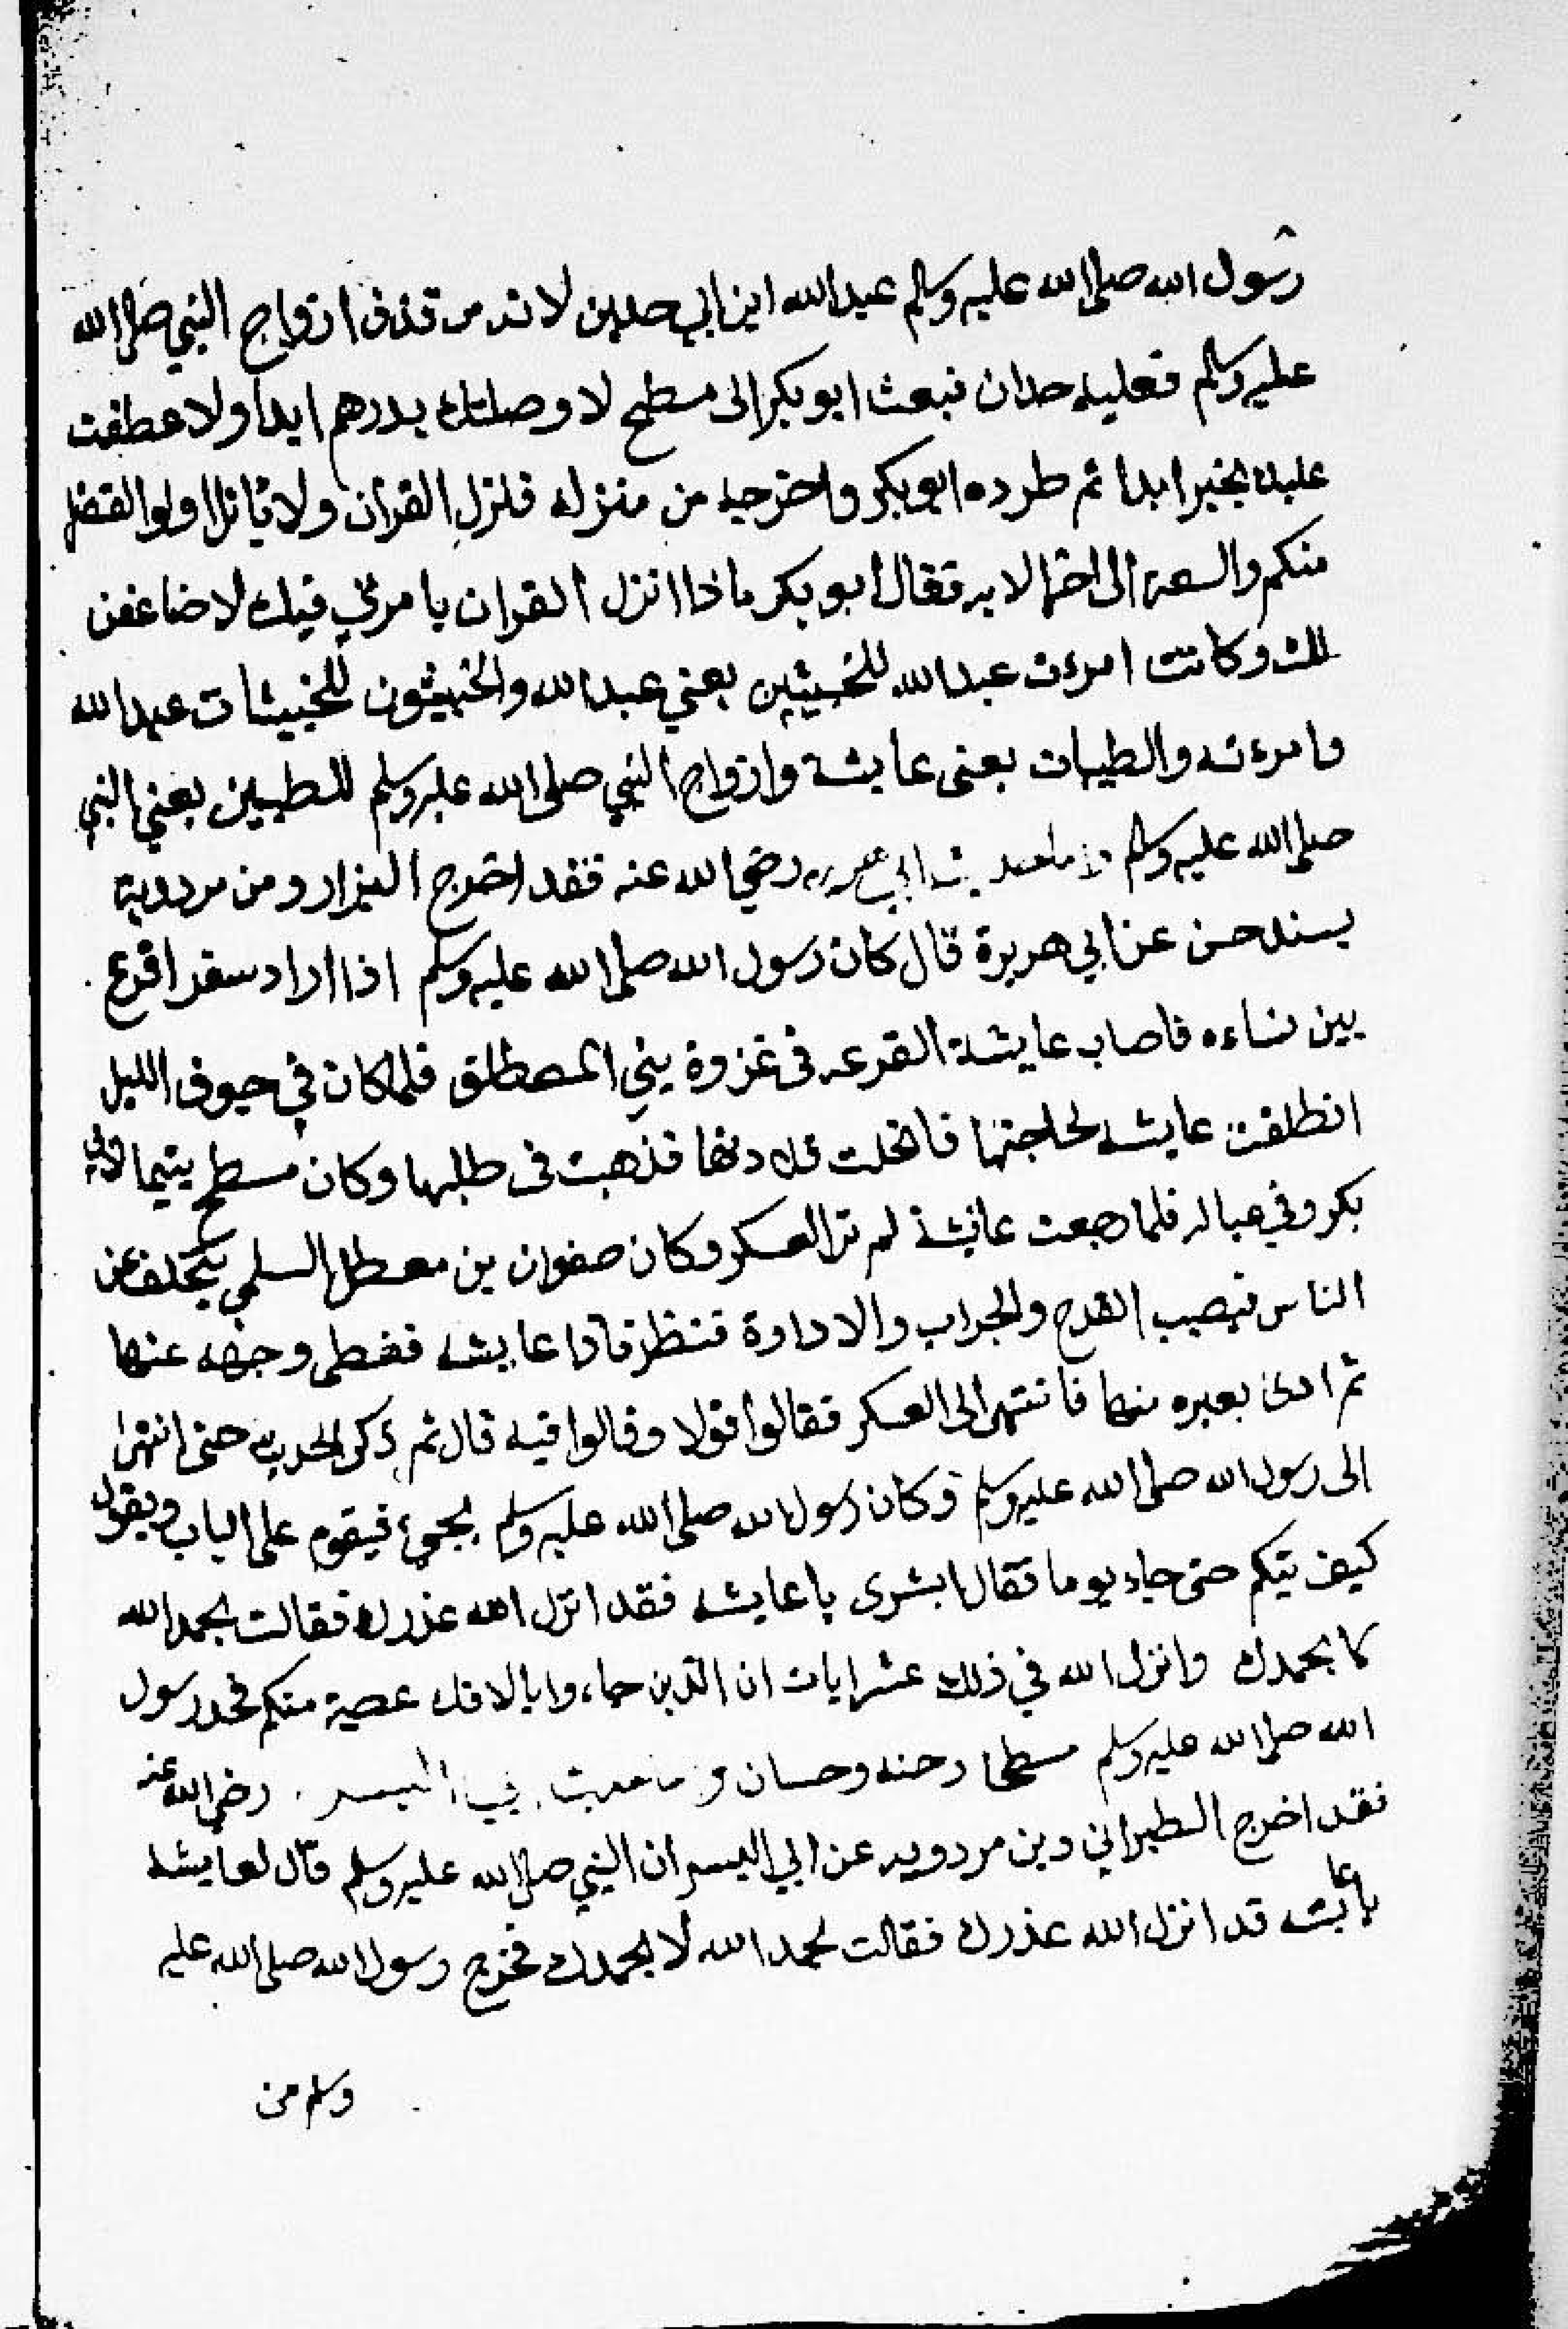 رسول الله صلى الله عليه وسلم عبد الله ابن ابي حدين لانه من قذف ازواج النبي صلى الله
عليه وسلم فعليه حدان فبعث ابو بكر الى مسطح لا وصلتك بدرهم ابدا ولا عطفت
عليك بخير ابدا ثم طرده ابو بكر واخرجه من منزله فنزل القران ولا ياتل اولوا الفضل
منكم والسعة الى اخر الاية فقال ابو بكر ماذا انزل القران يامرني فيك لاضاعفن
لك وكانت امرءت عبد الله للخبيثين يعني عبد الله والخبيثون للخبيثات عبد الله
وامرءته والطيبات يعنى عايشة وازواج النبي صلى الله عليه وسلم للطيبين يعني النبي
صلى الله عليه وسلم واما حديث ابي هريرة رضي الله عنه فقد اخرج البزار ومن مردوية
بسند حسن عن ابي هريرة قال كان رسول الله صلى الله عليه وسلم اذا اراد سفرا اقرع
بين نساءه فاصاب عايشة القرعه فى غزوة بني المصطلق فلما كان في جوف الليل
انطلقت عايشه لحاجتها فانحلت قلادتها فذهبت فى طلبها وكان مسطح يتيما لابي
بكر وفي عياله فلما رجعت عائشة لم تر العسكر وكان صفوان بن معطل السلمي يتخلف عن
الناس فيصيب القدح والجراب والاداوة فنظر فاذا عايشه فغطى وجهه عنها
ثم ادى بعيره منها فانتهى الى العسكر فقالوا قولا وقالوا فيه قال ثم ذكر الحديث حتى انتهى
الى رسول الله صلى الله عليه وسلم وكان رسول الله صلى الله عليه وسلم يجيء فيقوم على الباب ويقول
كيف تيكم حتى جاء يوما فقال ابشرى يا عايشه فقد انزل الله عذرك فقالت بحمد الله
لا بحمدك وانزل الله في ذلك عشر ايات ان الذين جاءوا بالافك عصبة منكم فحد رسول
الله صلى الله عليه وسلم مسطحا وحمنه وحسان واما حديث ابي اليسر رضي الله عنه
فقد اخرج الطبراني وبن مردويه عن ابي اليسر ان النبي صلى الله عليه وسلم قال لعايشه
يا عايشه قد انزل الله عذرك فقالت بحمد الله لا بحمدك فخرج رسول الله صلى الله عليه
وسلم من